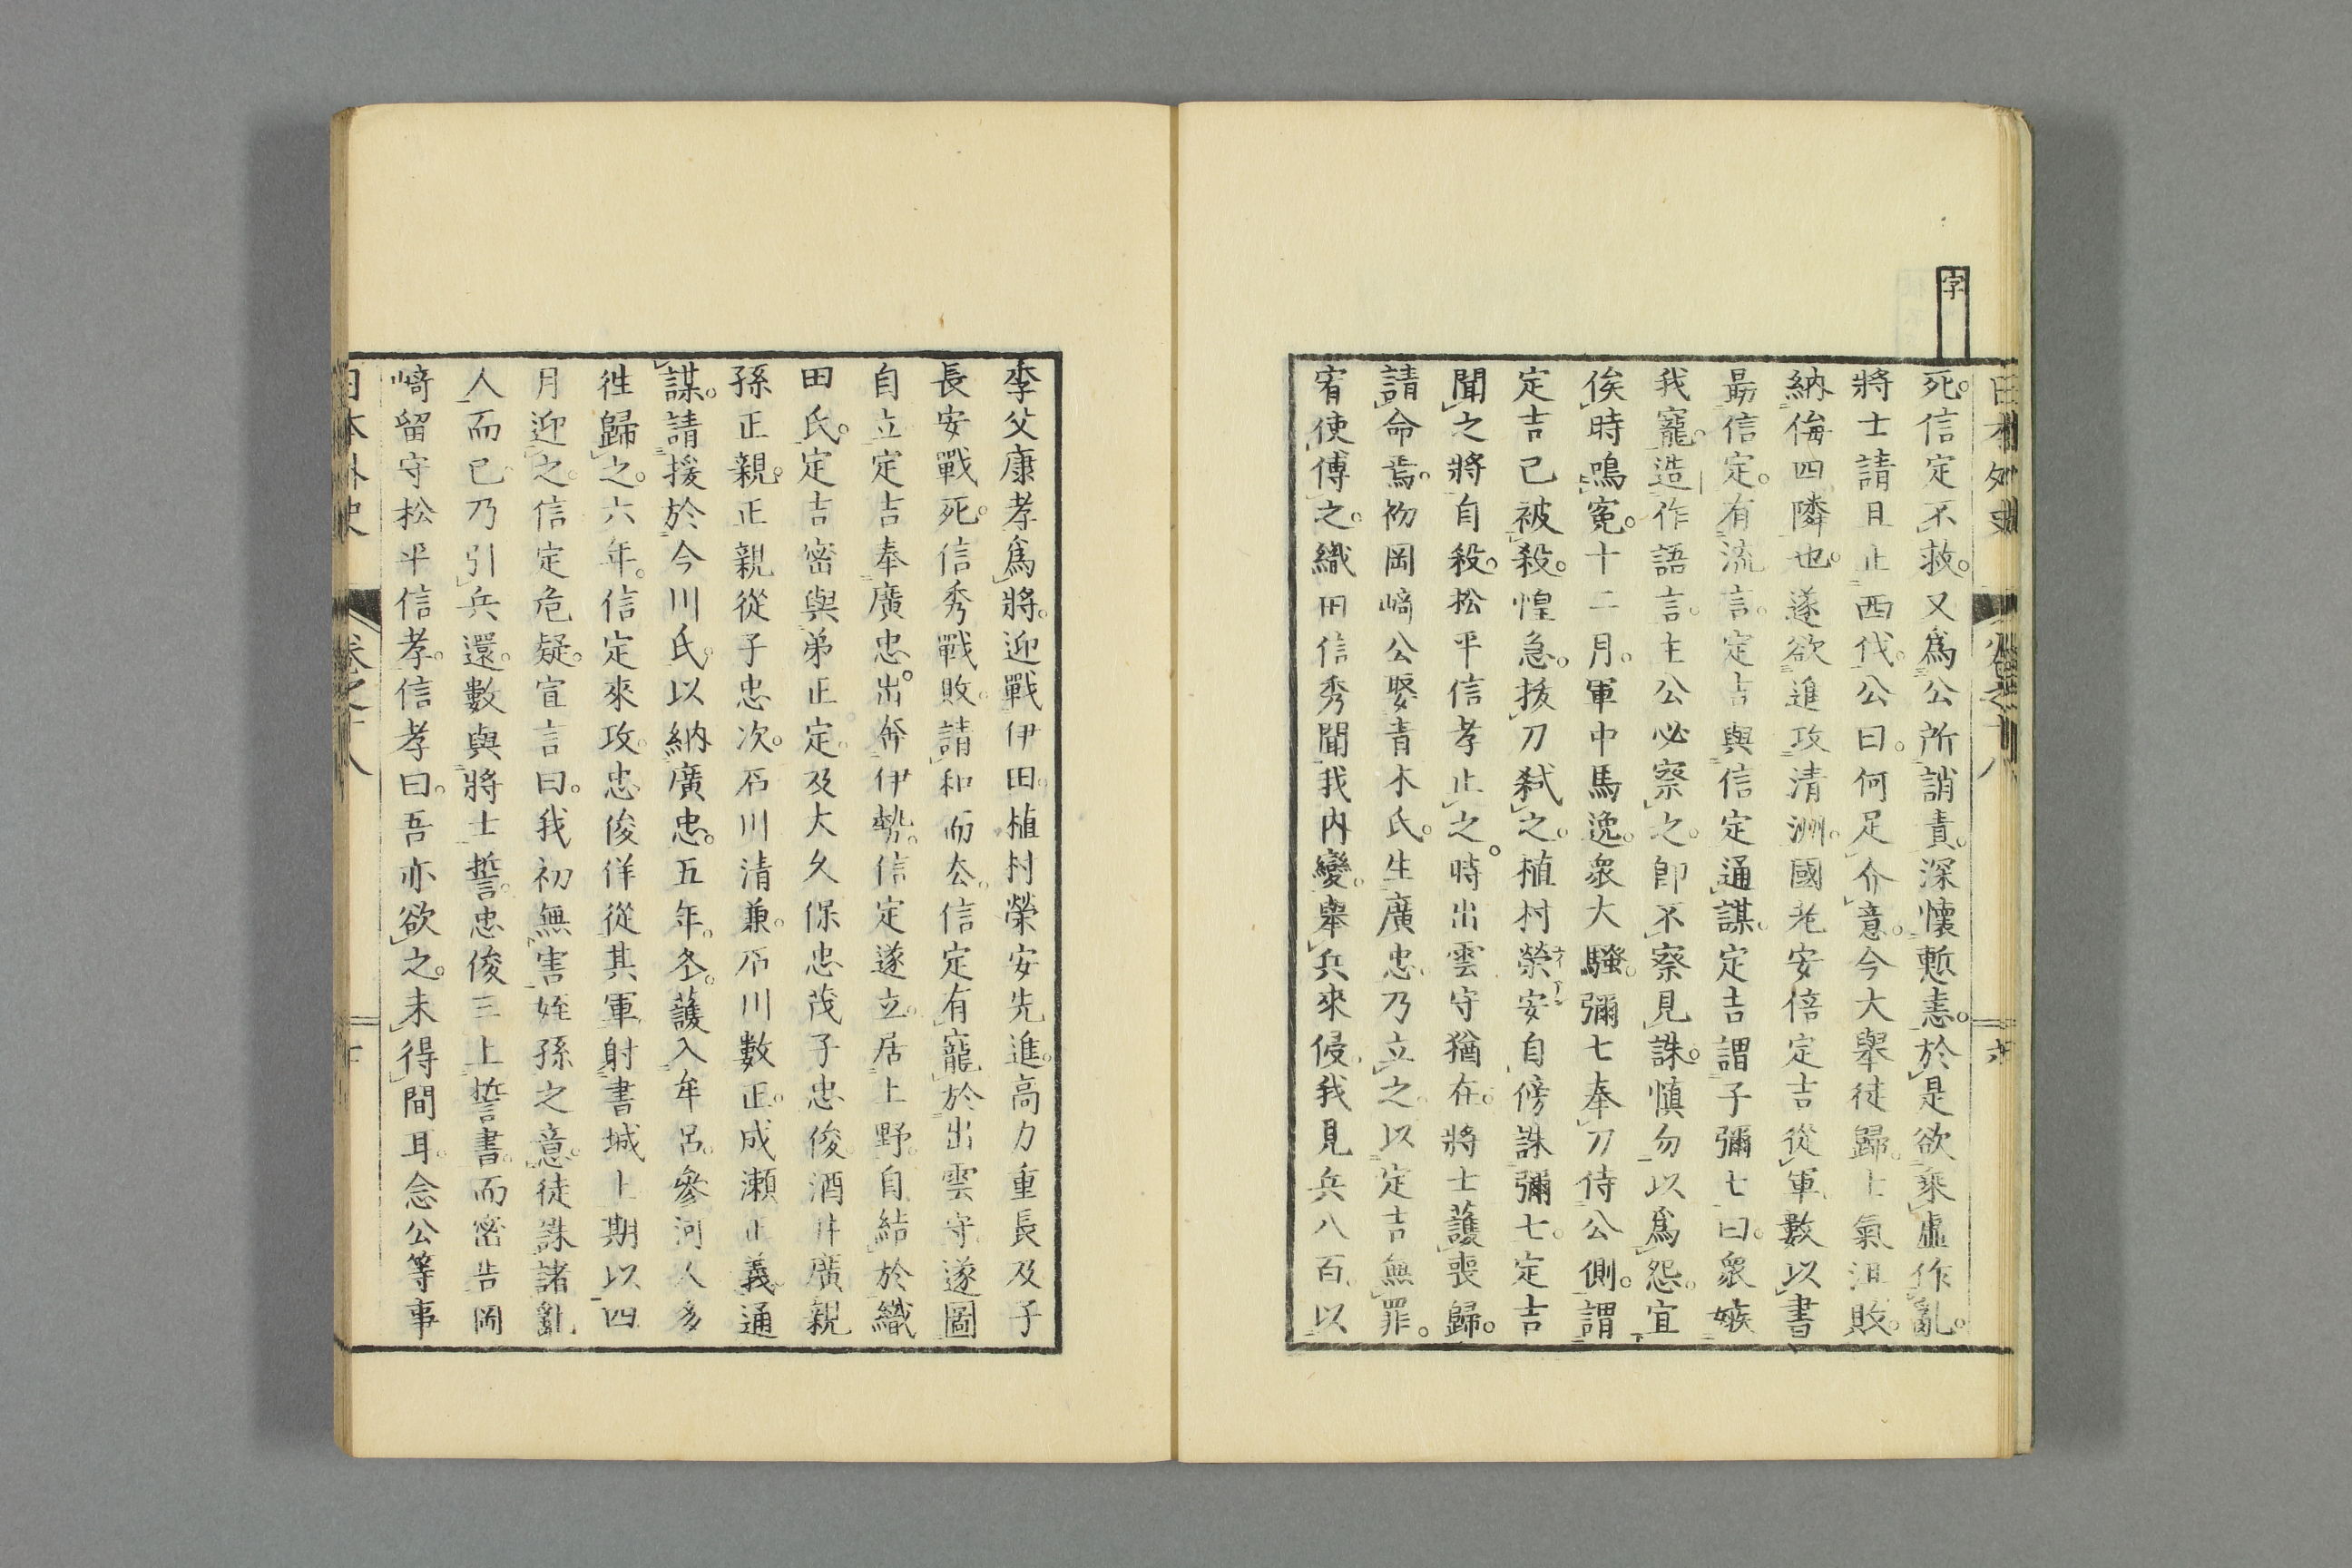 字
死。信定不救。又爲公所誚責。深懷慙恚。於是欲乘虛作亂。
將士請且止西伐。公曰。何足介意。今大舉徒歸。士氣沮敗。
納侮四隣也。遂欲進攻清洲。國老安倍定吉從軍。數以書
最信定。有流言。定吉與信定通謀。定吉謂子彌七曰。衆嫉
我寵。造作語言。主公必察之。卽不察見誅。愼勿以爲怨。宜
俟時鳴冤。十二月。軍中馬逸。衆大騷。彌七奉刀侍公側。謂
定吉已被殺。惶急。拔刀弑之。植村榮安自傍誅彌七。定吉
聞之將自殺。松平信孝止之。時出雲守猶在。將士護喪歸。
請命焉。初岡﨑公娶青木氏。生廣忠。乃立之。以定吉無罪。
宥使傅之。織田信秀聞我內變。舉兵來侵。我見兵八百。以
李父康孝爲將。迎戰伊田。植村榮安先進。高力重長及子
長安戰死。信秀戰敗。請和而去。信定有寵於出雲守。遂圖
自立。定吉奉廣忠。出奔伊勢。信定遂立。居上野。自結於織
田氏。定吉密與弟正定。及大久保忠茂子忠俊。酒井廣親
孫正親。正親從子忠次。石川清兼。石川數正。成瀨正義通
謀。請援於今川氏。以納廣忠。五年。冬。護入牟呂。參河人多
徃歸之。六年。信定來攻。忠俊佯從其軍。射書城上。期以四
月迎之。信定危疑。宣言曰。我初無害姪孫之意。徒誅諸亂
人而已。乃引兵還。數與將士誓。忠俊三上誓書。而密告岡
﨑留守松平信孝。信孝曰。吾亦欲之。未得間耳。念公等事
日本外史 卷之十八